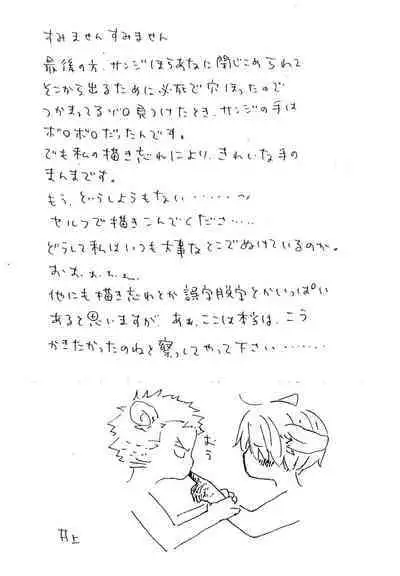 すみませんすみません
最後の方、サンジほらあなに閉じこめられて
そこから出るために必死で穴ほったので
つかまってるゾロ見つけたとき、サンジの手は
ボロボロだったんです。
でも私の描き忘れにより、きれいな手の
まんまです。
もう、どうしようもない・・・・・・〜
セルフで描きこんでくださ・・・・・
どうして私はいつも大事なとこでぬけているのか。
おぉぉぉぉ
他にも描き忘れとか誤字脱字とかいっぱい
あると思いますが、あぁ、ここは本当は、こう
かきたかったのねと察っしてやって下さい・・・・・・・
おう
井上